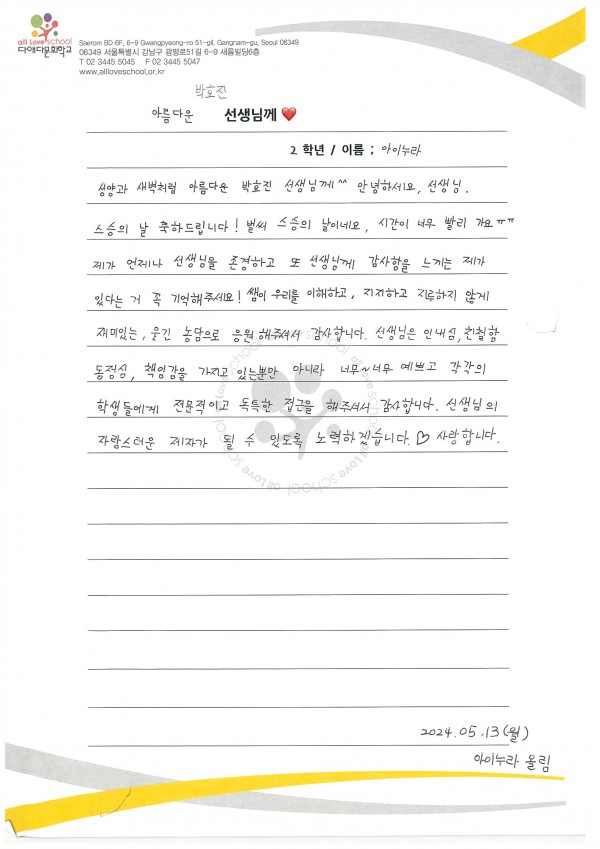 all Love school
다애다문화학교
Saerom BD 6F, 6-9 Gwangpyeong-ro 51-gil, Gangnam-gu, Seoul 06349
06349 서울특별시 강남구 광평로51길 6-9 새롬빌딩6층
T 02 3445 5045 F 02 3445 5047
www.allloveschool.or.kr
박효진
아름다운 선생님께 ❤️
2 학년 / 이름 ; 아이누라
석양과 새벽처럼 아름다운 박효진 선생님께^^ 안녕하세요, 선생님.
스승의 날 축하드립니다! 벌써 스승의 날이네요, 시간이 너무 빨리 가요ㅠㅠ
제가 언제나 선생님을 존경하고 또 선생님께 감사함을 느끼는 제가
있다는 거 꼭 기억해주세요! 쌤이 우리를 이해하고, 지지하고 지루하지 않게
재미있는, 웃긴 농담으로 응원해주셔서 감사합니다. 선생님은 인내심, 친절함
동정심, 책임감을 가지고 있는뿐만 아니라 너무~너무 예쁘고 각각의
학생들에게 전문적이고 독특한 접근을 해주셔서 감사합니다. 선생님의
자랑스러운 제자가 될 수 있도록 노력하겠습니다. ♡ 사랑합니다.
all Love school all Love school all Love school all Love school
2024.05.13(월)
아이누라 올림